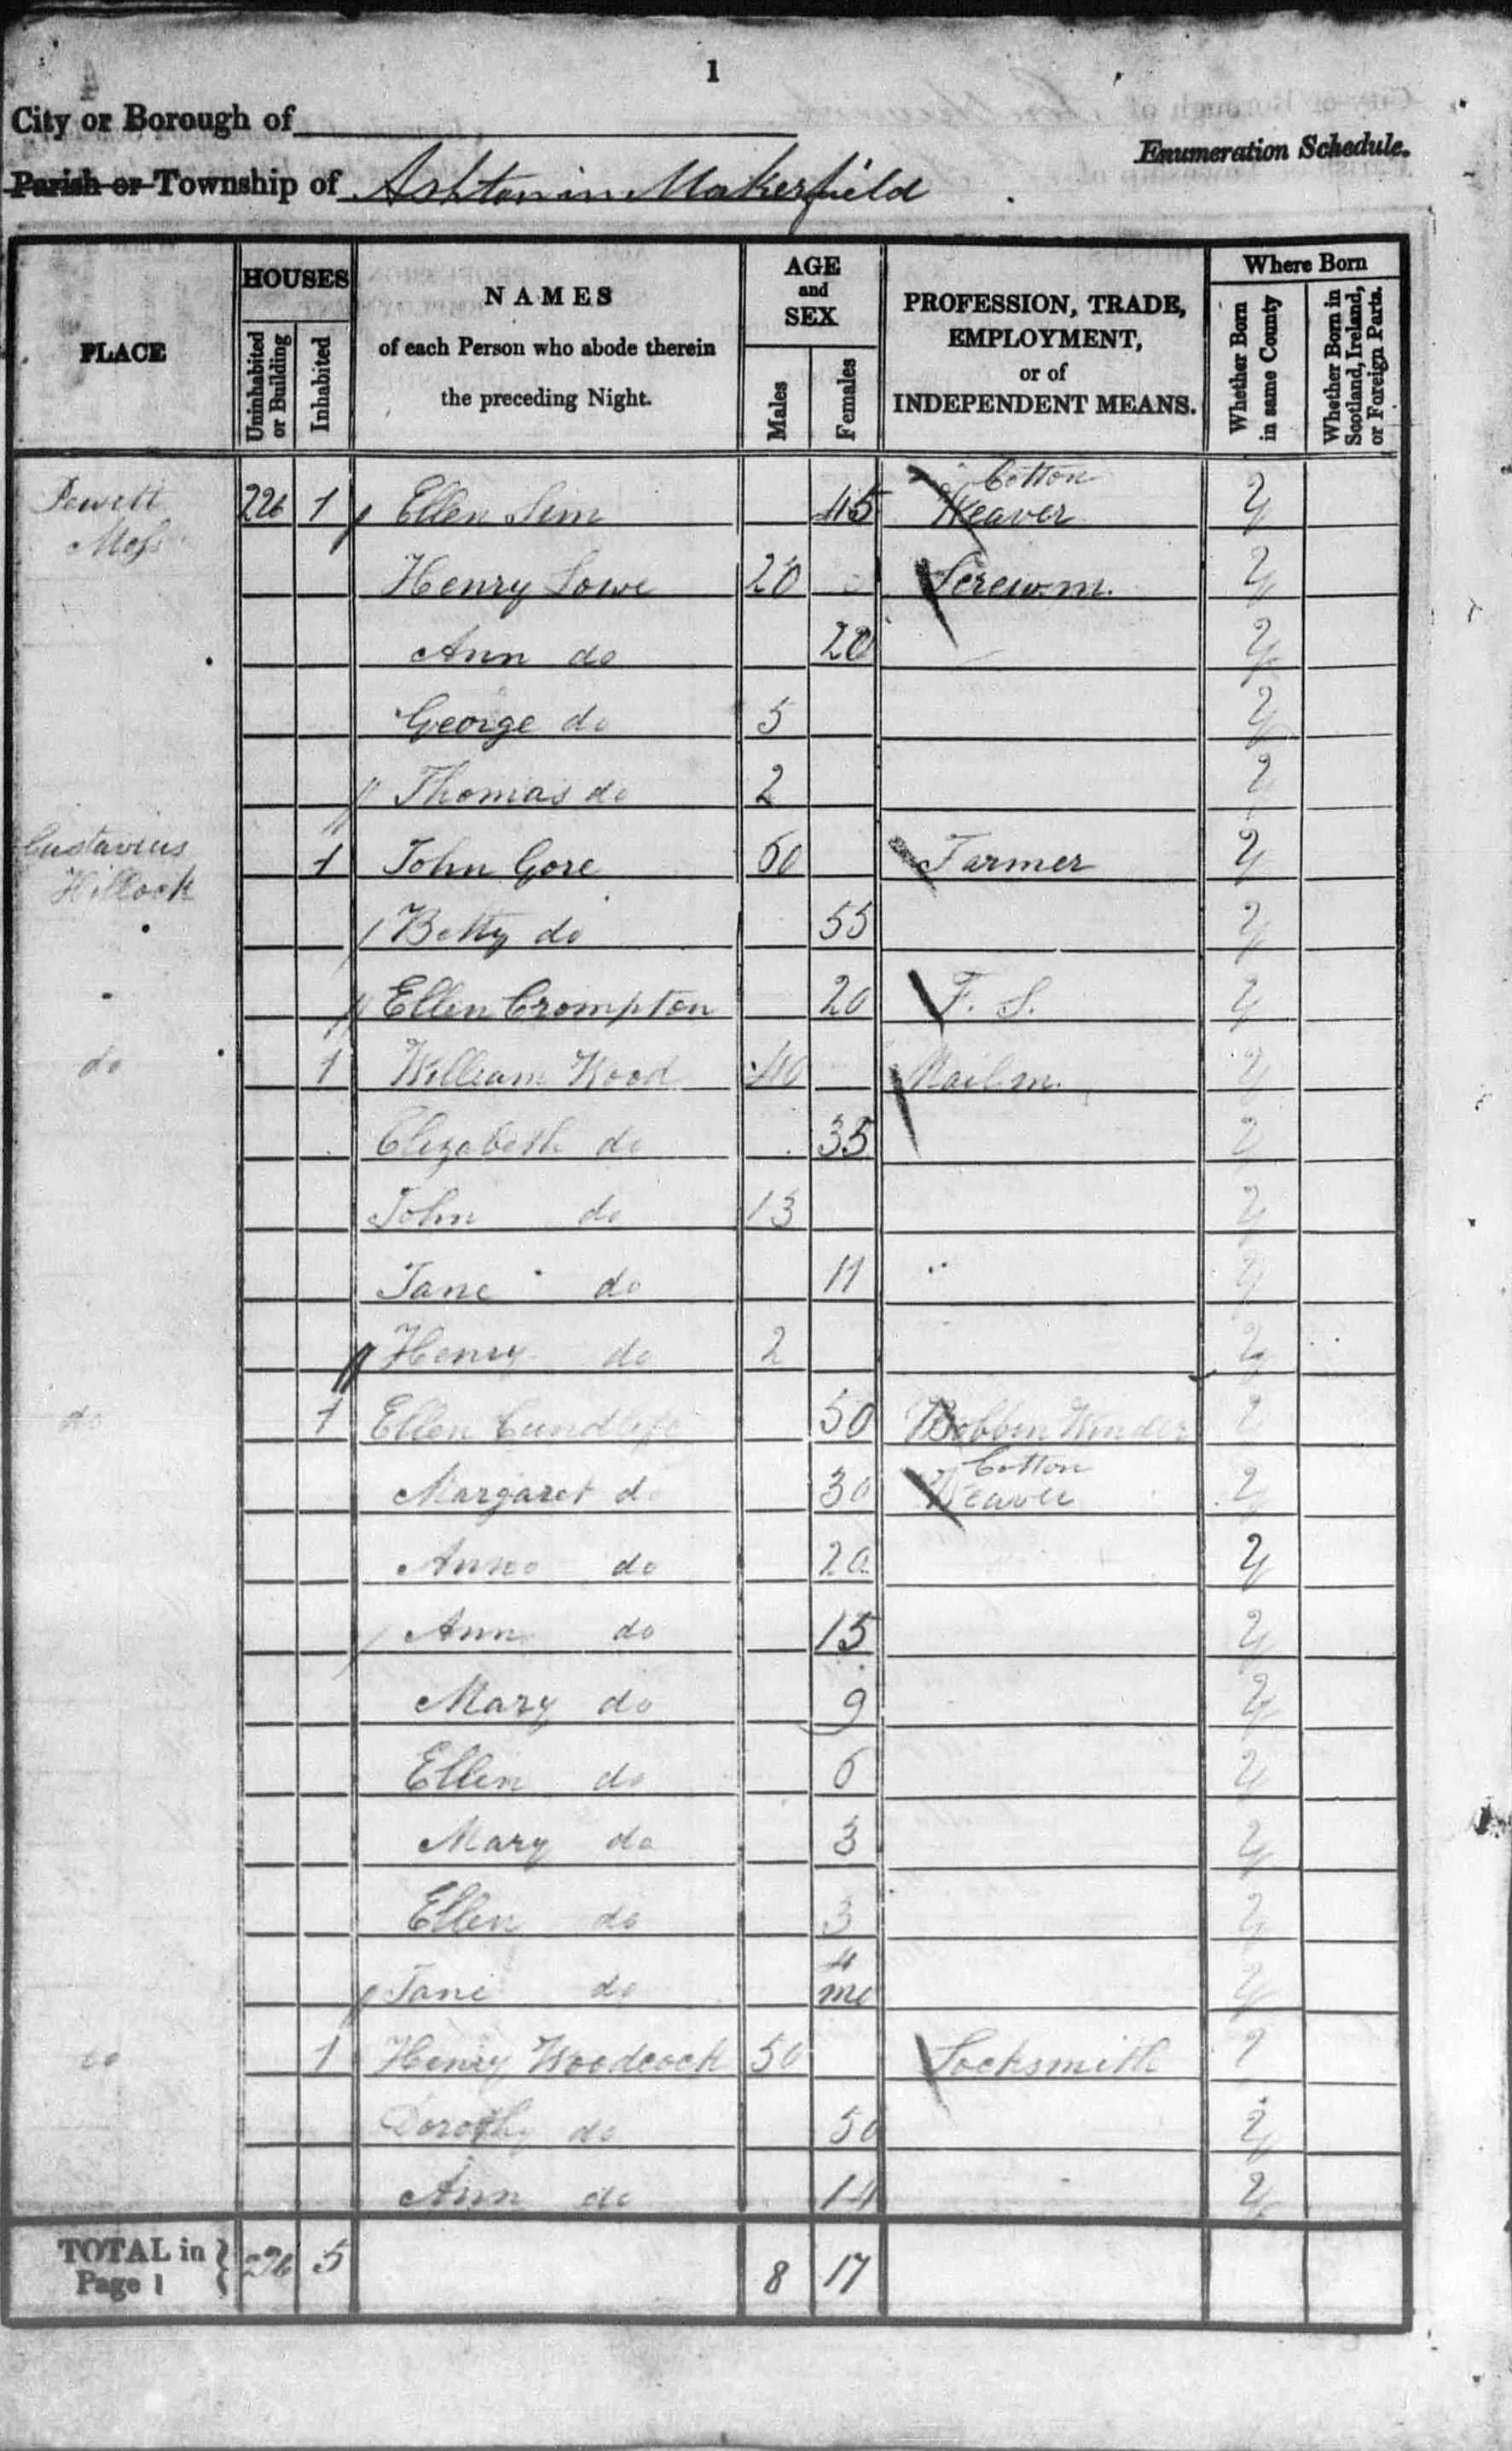 1
City or Borough of
Enumeration Schedule.
Parish or Township of Ashton in Makerfield
PLACE
HOUSES
Uninhabited or Building
Inhabited
NAMES
of each Person who abode therein
the preceding Night.
AGE
and
SEX
Males
Females
PROFESSION, TRADE,
EMPLOYMENT,
or of
INDEPENDENT MEANS.
Where Born
Whether Born in same County
Whether Born in Scotland, Ireland, or Foreign Parts.
Pewett Moss 226 1 Ellen Sim 45 Cotton Weaver Y
Henry Lowe 20 Screw m. Y
Ann do 20 Y
George do 5 Y
Thomas do 2 Y
Gustavius Hillock 1 John Gore 60 Farmer Y
Betty do 55 Y
Ellen Crompton 20 F. S. Y
do 1 William Wood 40 Nail m. Y
Elizabeth do 35 Y
John do 13 Y
Jane do 11 Y
Henry do 2 Y
do 1 Ellen Cundliffe 50 Bobbin Winder Y
Margaret do 30 Cotton Weaver Y
do 20 Y
Ann do 15 Y
Mary do 9 Y
Ellen do 6 Y
Mary do 3 Y
Ellen do 3 Y
Jane do 4 mo Y
do 1 Henry Woodcock 50 Locksmith Y
Dorothy do 50 Y
Ann do 14 Y
TOTAL in Page 1 226 5 8 17